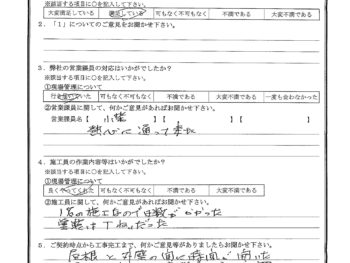 ※該当する項目に○を記入して下さい。
大変満足している 満足している 可もなく不可もなく 不満である 大変不満である
2.「1」についてのご意見をお聞かせ下さい。
3.弊社の営業議員の対応はいかがでしたか?
※該当する項目に○を記入して下さい。
①現場管理について
行き届いていた 可もなく不可もなく 不満である 大変不満である 一度も会わなかった
②営業議員に関して、何かご意見があればお聞かせ下さい。
営業議員名【 小柴 】【 】【 】
熱心に通って来た
4.施工員の作業内容等はいかがでしたか?
※該当する項目に○を記入して下さい。
①現場管理について
良くやってくれた 可もなく不可もなく 不満である 大変不満である
②施工員に関して、何かご意見があればお聞かせ下さい。
塗装はていねいだった
5.ご契約時点から工事完工まで、何かご意見等がありましたらお聞かせ下さい。
屋根と外壁の間に時間が開いた